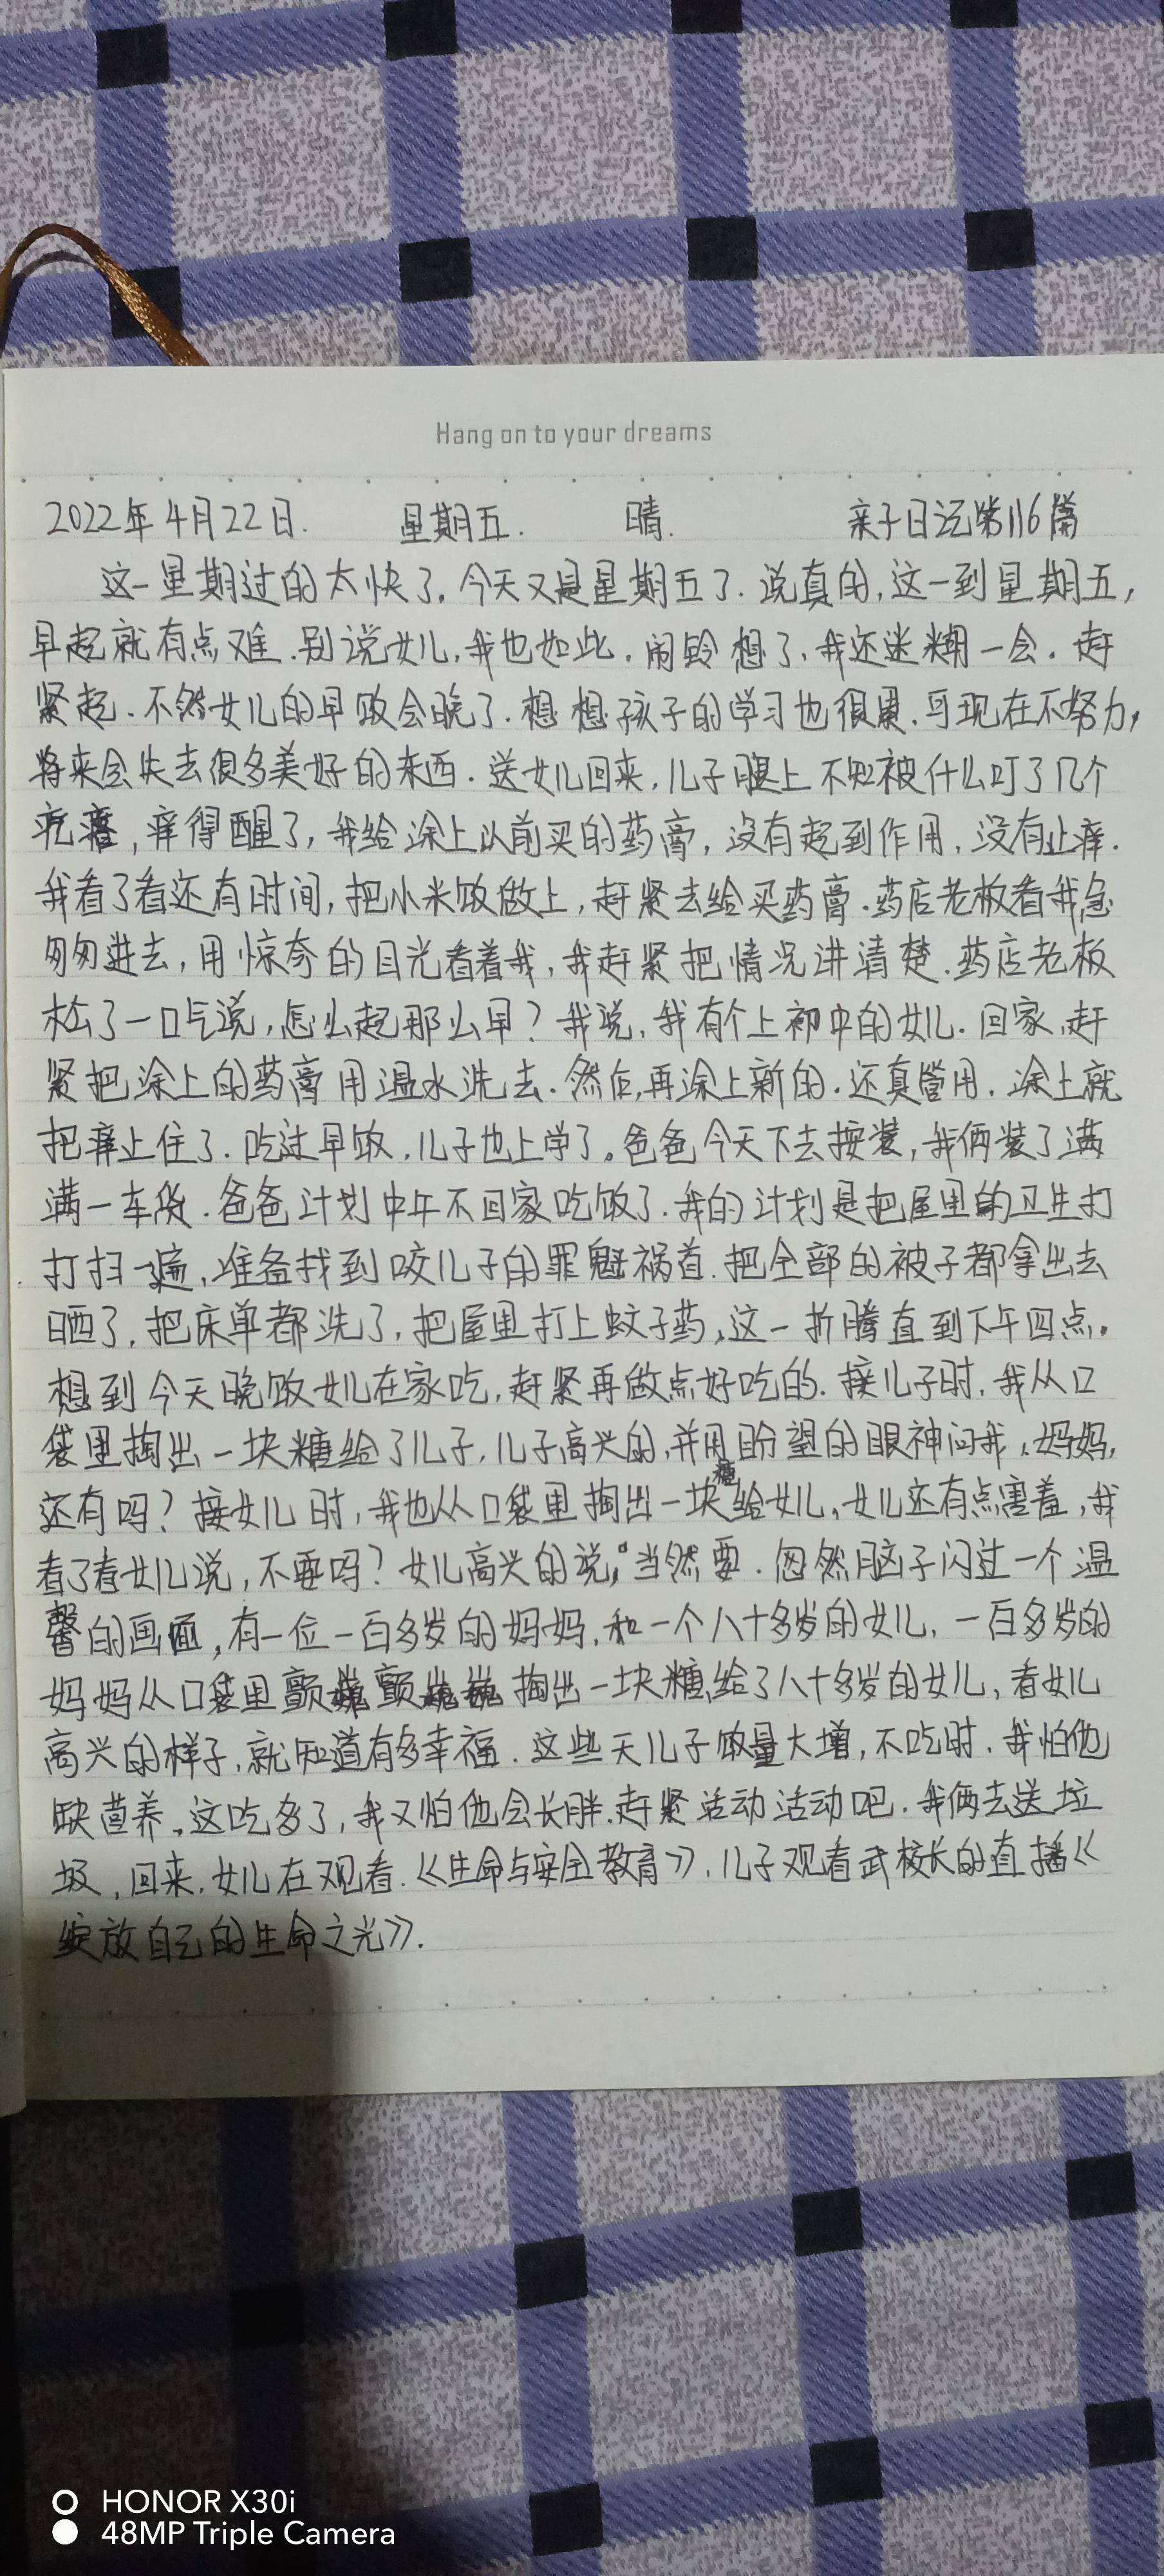 Hang on to your dreams
2022年4月22日. 星期五. 晴. 亲子日记第116篇
这一星期过的太快了。今天又是星期五了.说真的,这一到星期五,
早起就有点难.别说女儿,我也如此.闹铃想了,我还迷糊一会.赶
紧起.不然女儿的早饭会晚了.想想孩子的学习也很累.可现在不努力,
将来会失去很多美好的东西.送女儿回来,儿子腿上不知被什么叮了几个
疙瘩,痒得醒了,我给涂上以前买的药膏,没有起到作用,没有止痒.
我看了看还有时间,把小米饭做上,赶紧去给买药膏.药店老板看我急
匆匆进去,用惊奇的目光看着我,我赶紧把情况讲清楚.药店老板
松了一口气说,怎么起那么早?我说,我有个上初中的女儿.回家,赶
紧把涂上的药膏用温水洗去.然后,再涂上新的.还真管用.涂上就
把痒止住了.吃过早饭,儿子也上学了。爸爸今天下去按装,我俩装了满
满一车货.爸爸计划中午不回家吃饭了.我的计划是把屋里的卫生打
打扫一遍,准备找到咬儿子的罪魁祸首.把全部的被子都拿出去
晒了,把床单都洗了,把屋里打上蚊子药,这一折腾直到下午四点。
想到今天晚饭女儿在家吃,赶紧再做点好吃的.接儿子时,我从口
袋里掏出一块糖给了儿子,儿子高兴的,并用盼望的眼神问我,妈妈,
还有吗?接女儿时,我也从口袋里掏出一块糖给女儿,女儿还有点害羞,我
看了看女儿说,不要吗?女儿高兴的说,当然要.忽然脑子闪过一个温
馨的画面,有一位一百多岁的妈妈,和一个八十多岁的女儿,一百多岁的
妈妈从口袋里颤巍颤巍巍掏出一块糖,给了八十多岁的女儿,看女儿
高兴的样子,就知道有多幸福.这些天儿子饭量大增,不吃时,我怕他
缺营养。这吃多了,我又怕他会长胖.赶紧活动活动吧.我俩去送垃
圾,回来,女儿在观看.《生命与安全教育》,儿子观看武校长的直播《
绽放自己的生命之光》.
HONOR X30i
48MP Triple Camera